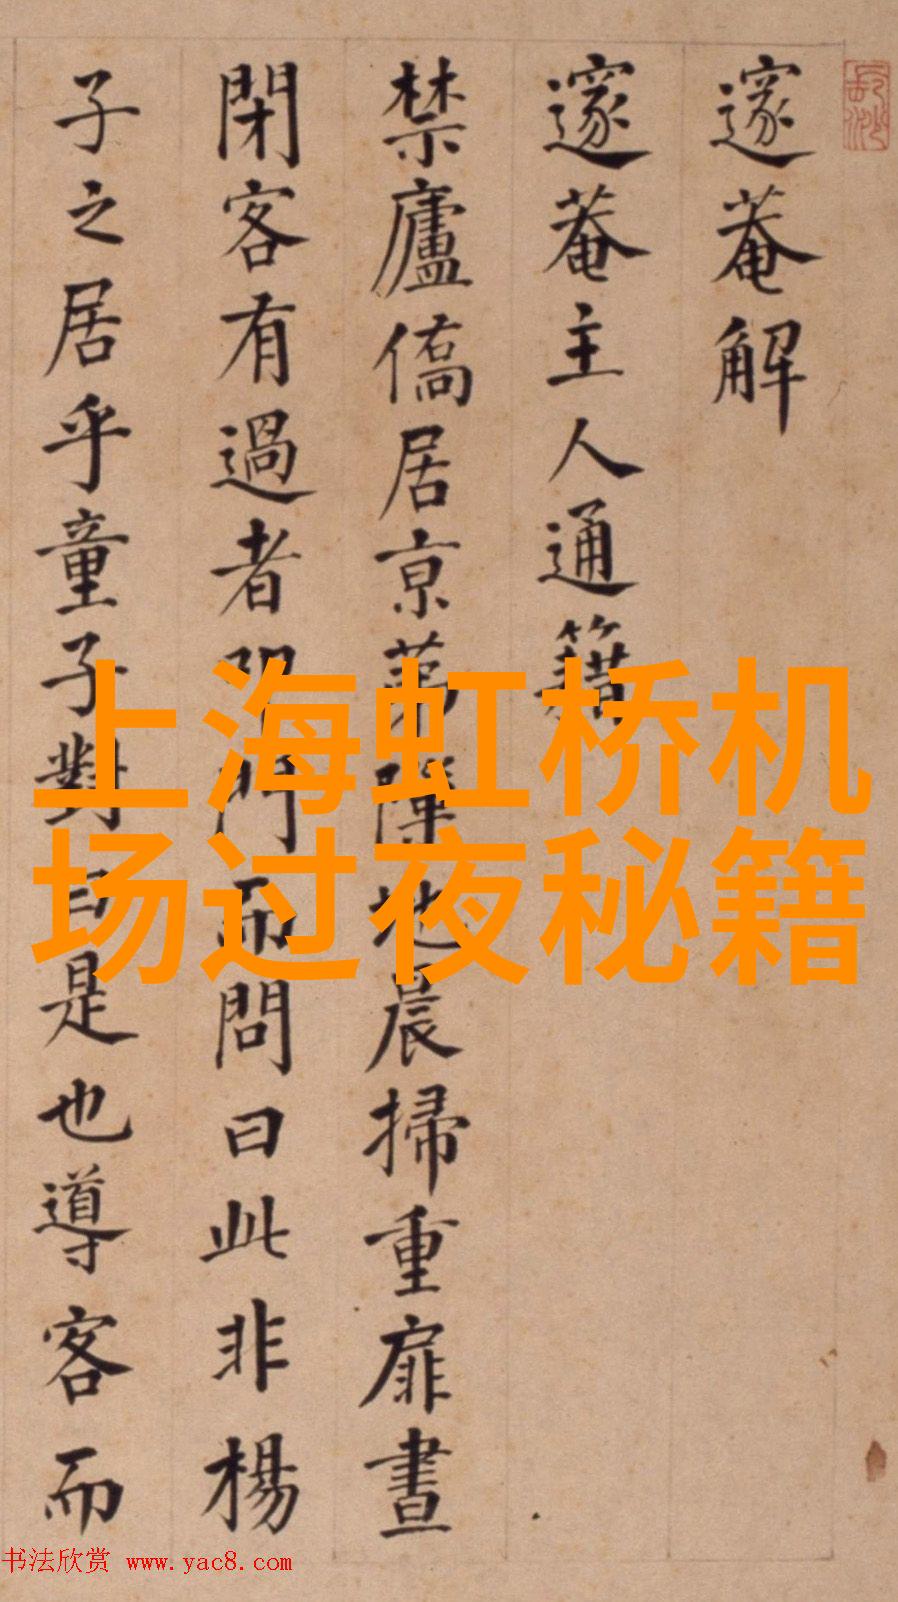 邃菴解
邃菴主人通籍
禁廬僑居京第隙地晨掃重扉晝
閉客有過者叩門而問曰此非楊
子之居乎童子對曰是也導客而
上海虹桥机
场过夜秘籍
书法欣赏 www.yac8.com